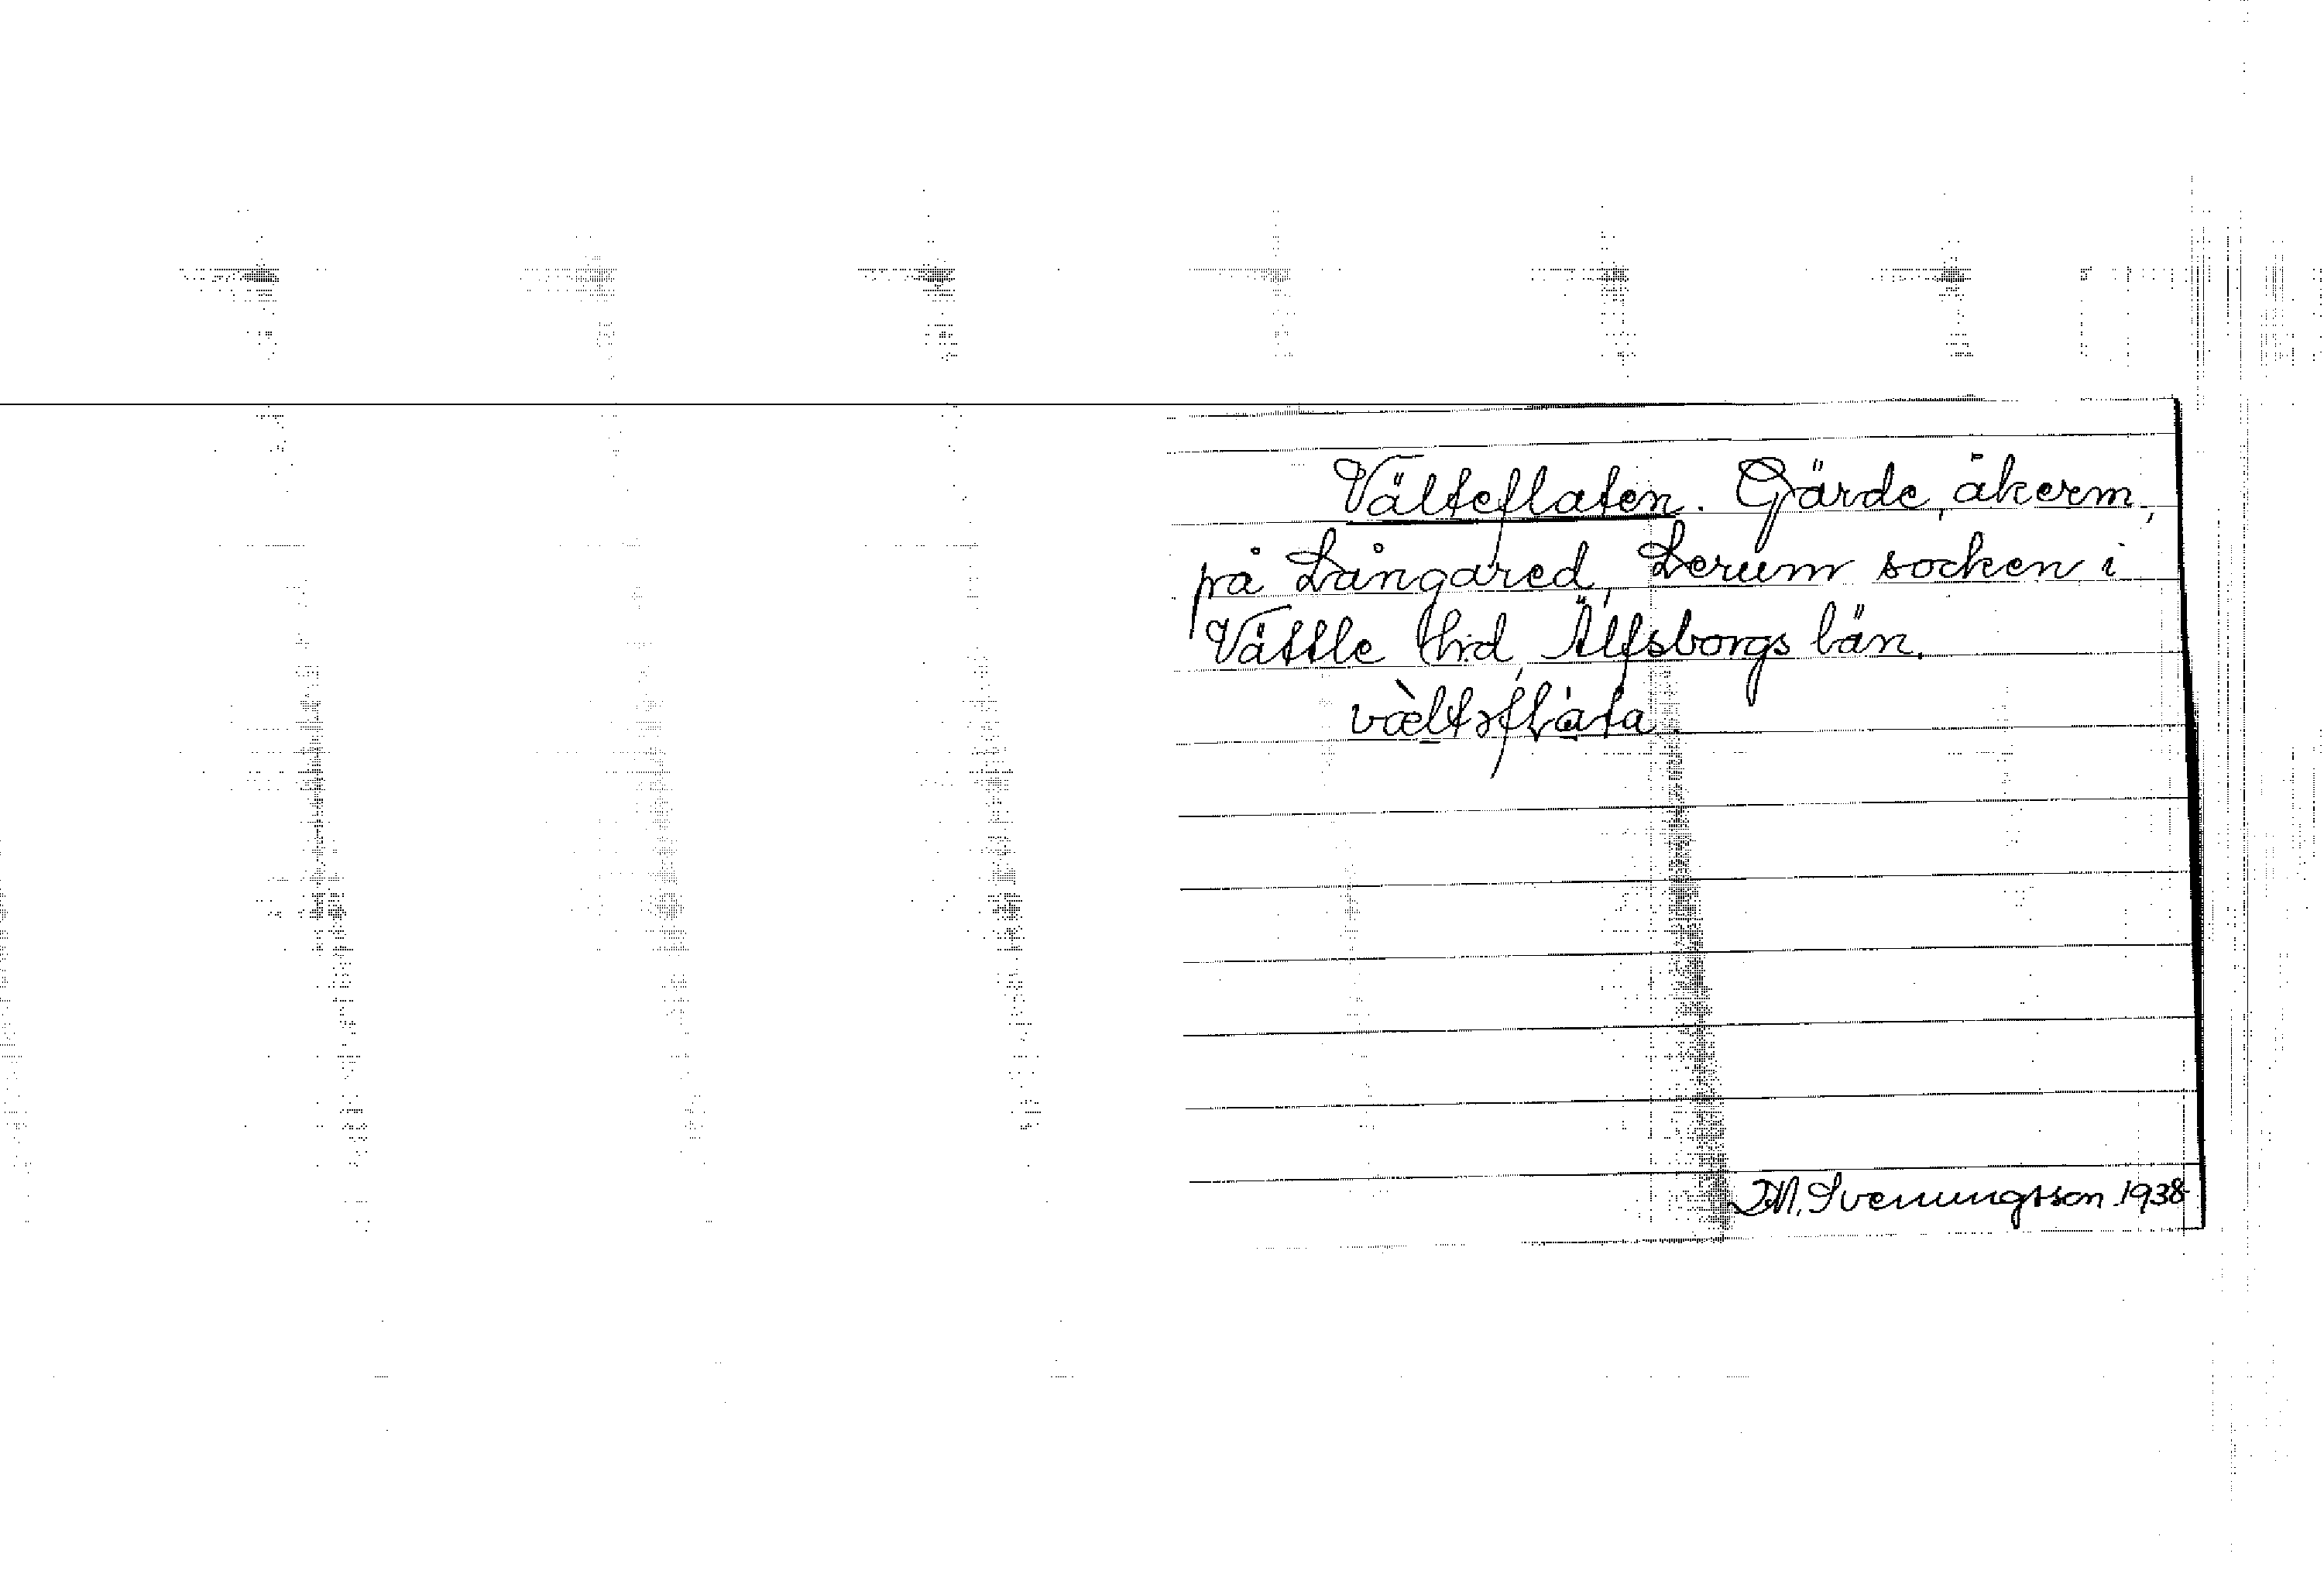 Välteflaten. Gärde, åkerm,
på Långared, Lerum socken i
Vättle hd, Älfsborgs län.
D.M. Svenungsson 1938